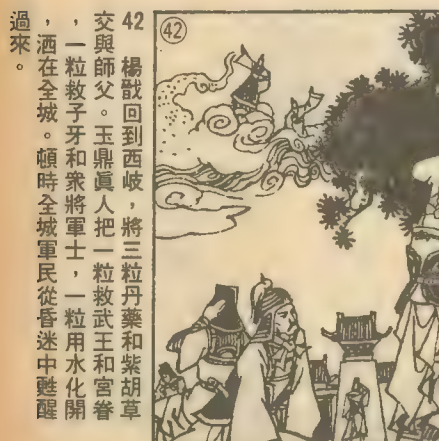 42　楊戩回到西岐，將三粒丹藥和紫胡草
交與師父。玉鼎眞人把一粒救武王和宮眷
，一粒救子牙和衆將軍士，一粒用水化開
，洒在全城。頓時全城軍民從昏迷中甦醒
過來。
42